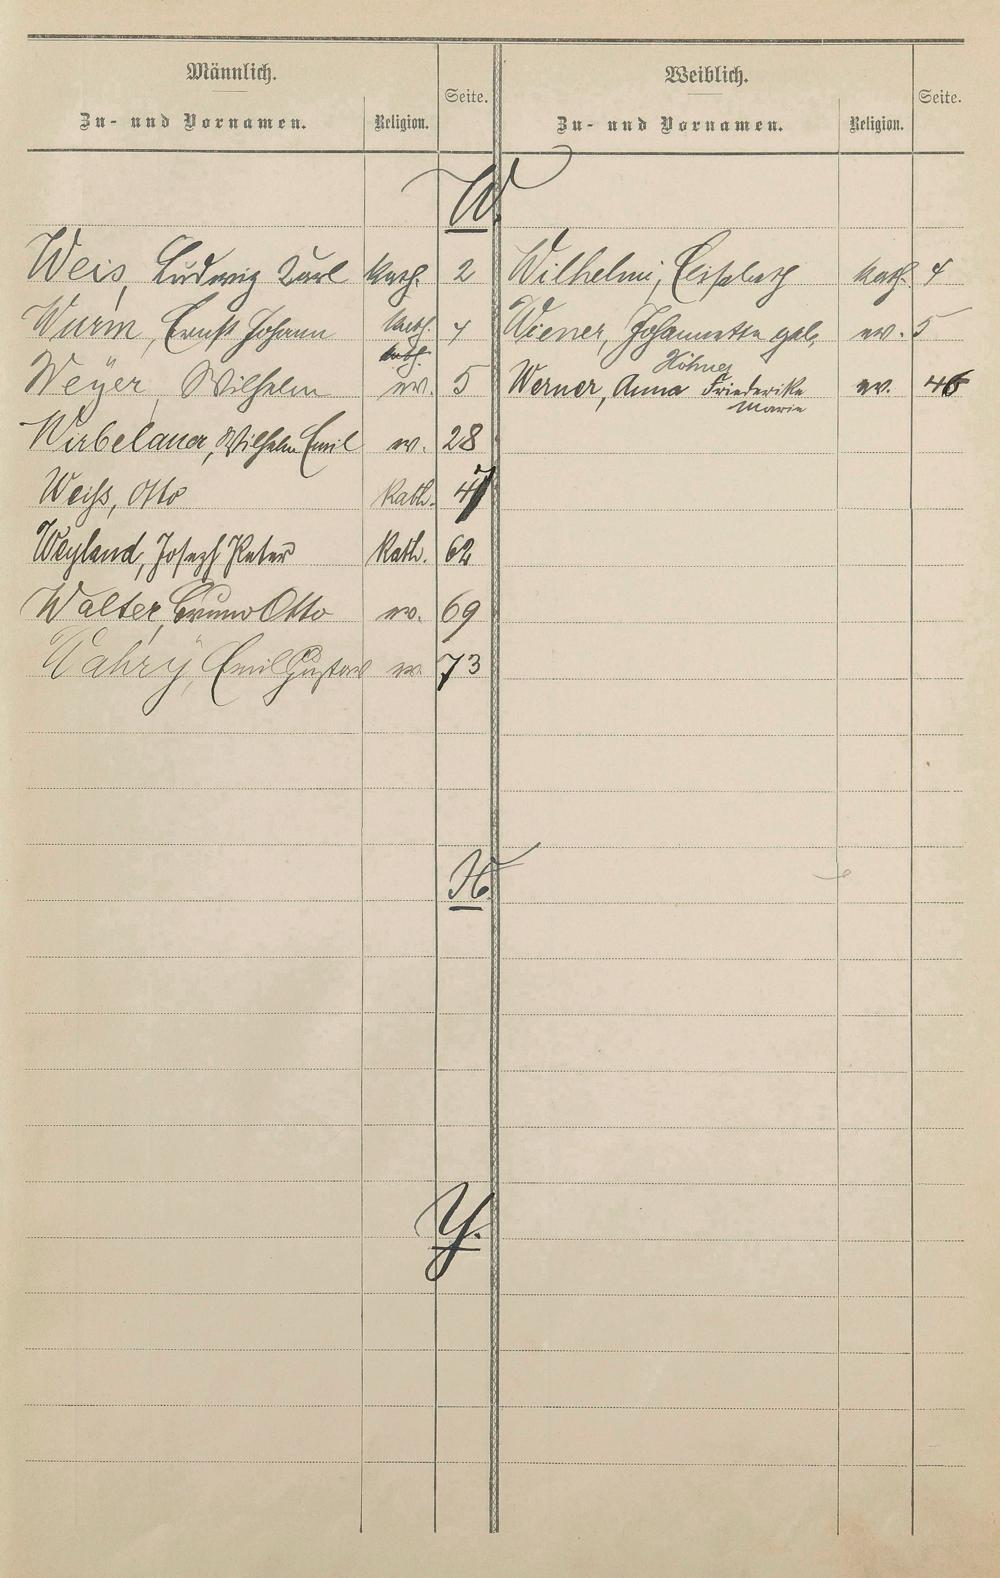 Männlich.
Zu- und Vornamen.
Religion.
Seite.
Weiblich.
Zu- und Vornamen.
Religion.
Seite.
W.
Weis, Ludwig Karl kath. 2
Wilhelmi, Elisabeth kath. 4
Wurm, Ernst Johann kath. 4
Wiener, Johannette geb. ev. 5
Höhner
kath.
Weyer, Wilhelm ev. 5
Werner, Anna Friederike ev. 46
Marie
Wirbelauer, Wilhelm Emil ev. 28
Weiss, Otto kath. 47
Weyland, Joseph Peter kath. 62
Walter, Bruno Otto ev. 69
Wahry, Emil Gustav ev. 73
X.
Y.